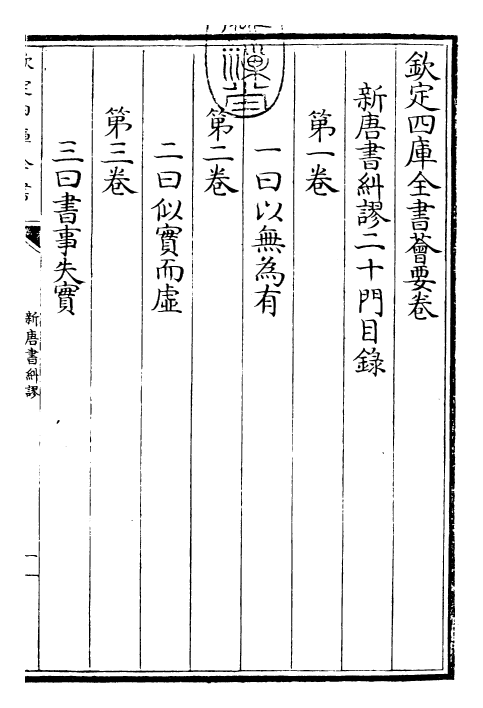 欽定四庫全書薈要卷
新唐書糾謬二十門目錄
第一卷
一曰以無為有
第二卷
二曰似實而虛
第三卷
三曰書事失實
新唐書糾謬
一